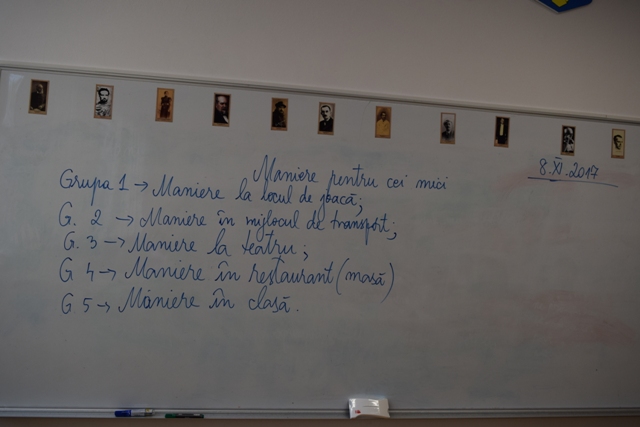 8.XI.2017
Maniere pentru cei mici
Grupa 1 → Maniere la locul de joacă;
G. 2 → Maniere în mijlocul de transport;
G. 3 → Maniere la teatru;
G 4 → Maniere în restaurant (masă)
G 5 → Maniere în clasă.